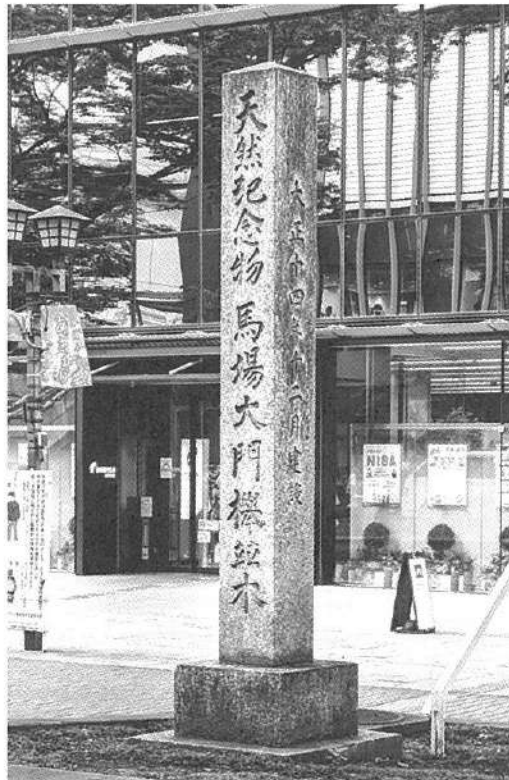 天然紀念物 馬場大門欅並木
大正十四年十二月建設
NISA